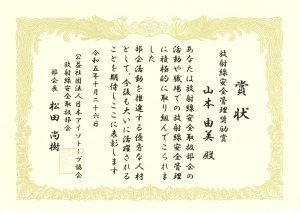 賞状
放射線安全管理奨励賞
山本由美殿
あなたは放射線安全取扱部会の
活動や職場での放射線安全管理
に積極的に取り組んでこられま
した
部会活動を推進する優秀な人材
として今後も大いに活躍される
ことを期待しここに表彰します
令和五年十月二十六日
公益社団法人日本アイソトープ協会
放射線安全取扱部会
部会長 松田尚樹